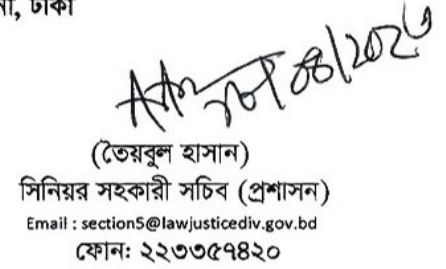 ঢাকা
(তৈয়বুল হাসান)
সিনিয়র সহকারী সচিব (প্রশাসন)
Email : section5@lawjusticediv.gov.bd
ফোন: ২২৩৩৫৭৪২০